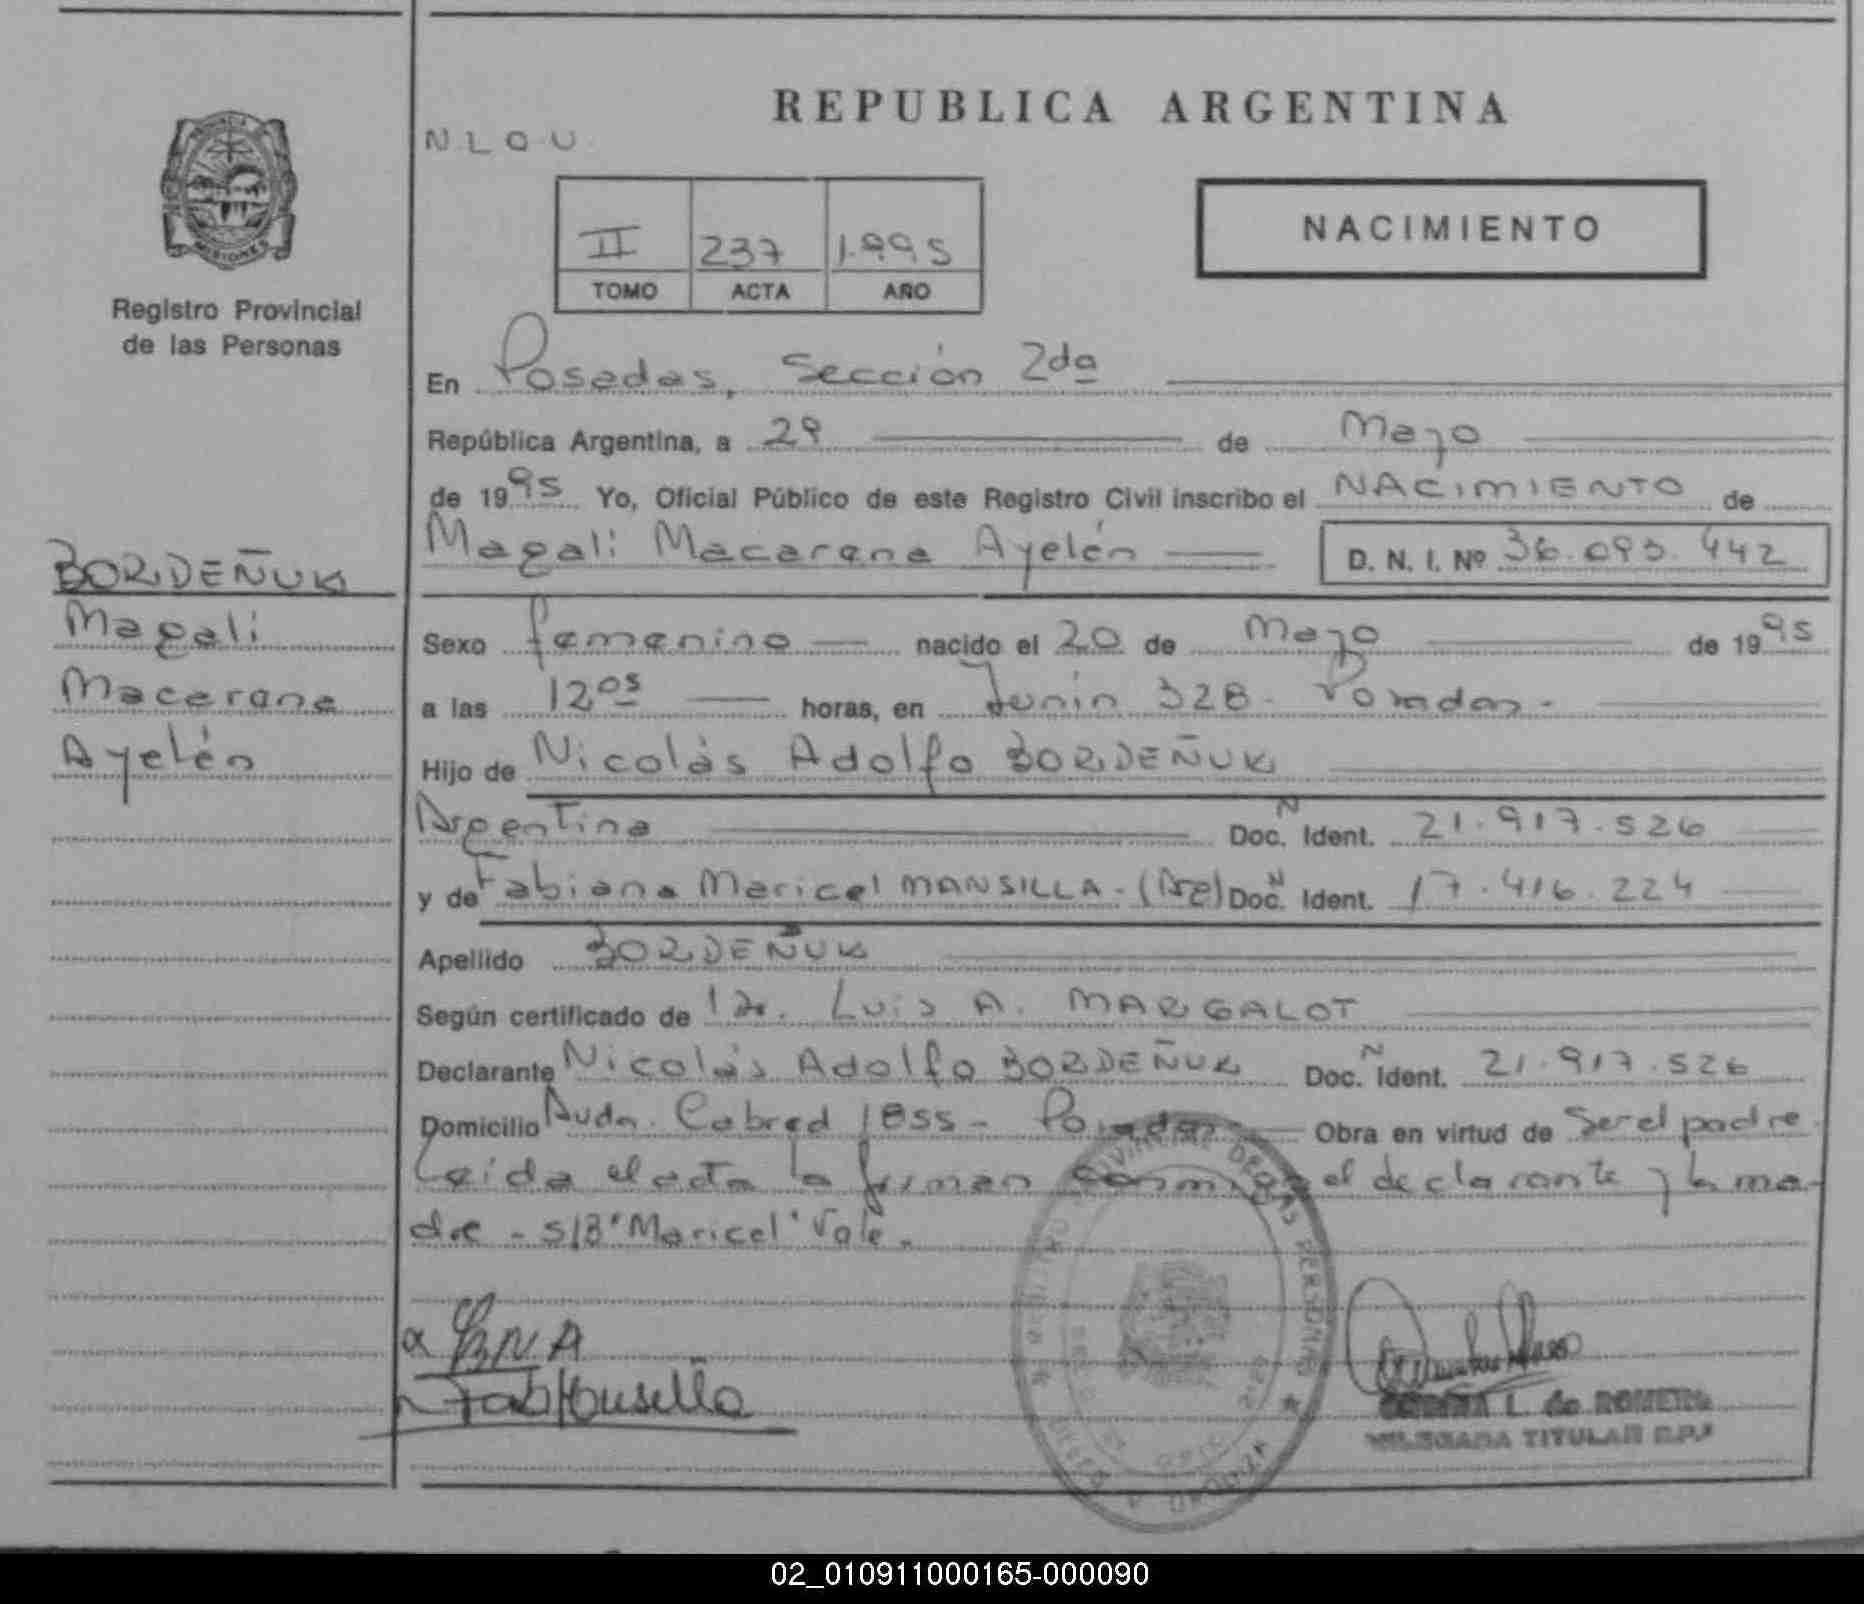 REPUBLICA ARGENTINA
N L O U
PROVINCIA
MISIONES
Registro Provincial
de las Personas
II 237 1.995
TOMO ACTA AÑO
NACIMIENTO
En Posadas, Sección 2da
República Argentina, a 29 de Mayo
de 1995 Yo, Oficial Público de este Registro Civil inscribo el NACIMIENTO de
Magalí Macarena Ayelén D. N. I. Nº 36.093.442
BORDEÑUK
Magalí
Macarena
Ayelén
Sexo femenino nacido el 20 de Mayo de 1995
a las 12 05 horas, en Junín 328 - Posadas -
Hijo de Nicolás Adolfo BORDEÑUK
Argentina Doc. N Ident. 21.917.526
y de Fabiana Maricel MANSILLA - (Arg) Doc. N Ident. 17.416.224
Apellido BORDEÑUK
Según certificado de Dr. Luis A. MARGALOT
Declarante Nicolás Adolfo BORDEÑUK Doc. N Ident. 21.917.526
Domicilio Avda. Cabred 1855 - Posadas Obra en virtud de Ser el padre
Leída el acta la firman conmigo el declarante y la ma-
dre - S/B "Maricel" Vale.
B.N.A
Fab Mansilla
PROVINCIAL DE LAS PERSONAS
L. de ROMERO
DELEGADA TITULAR R.P.P
02_010911000165-000090